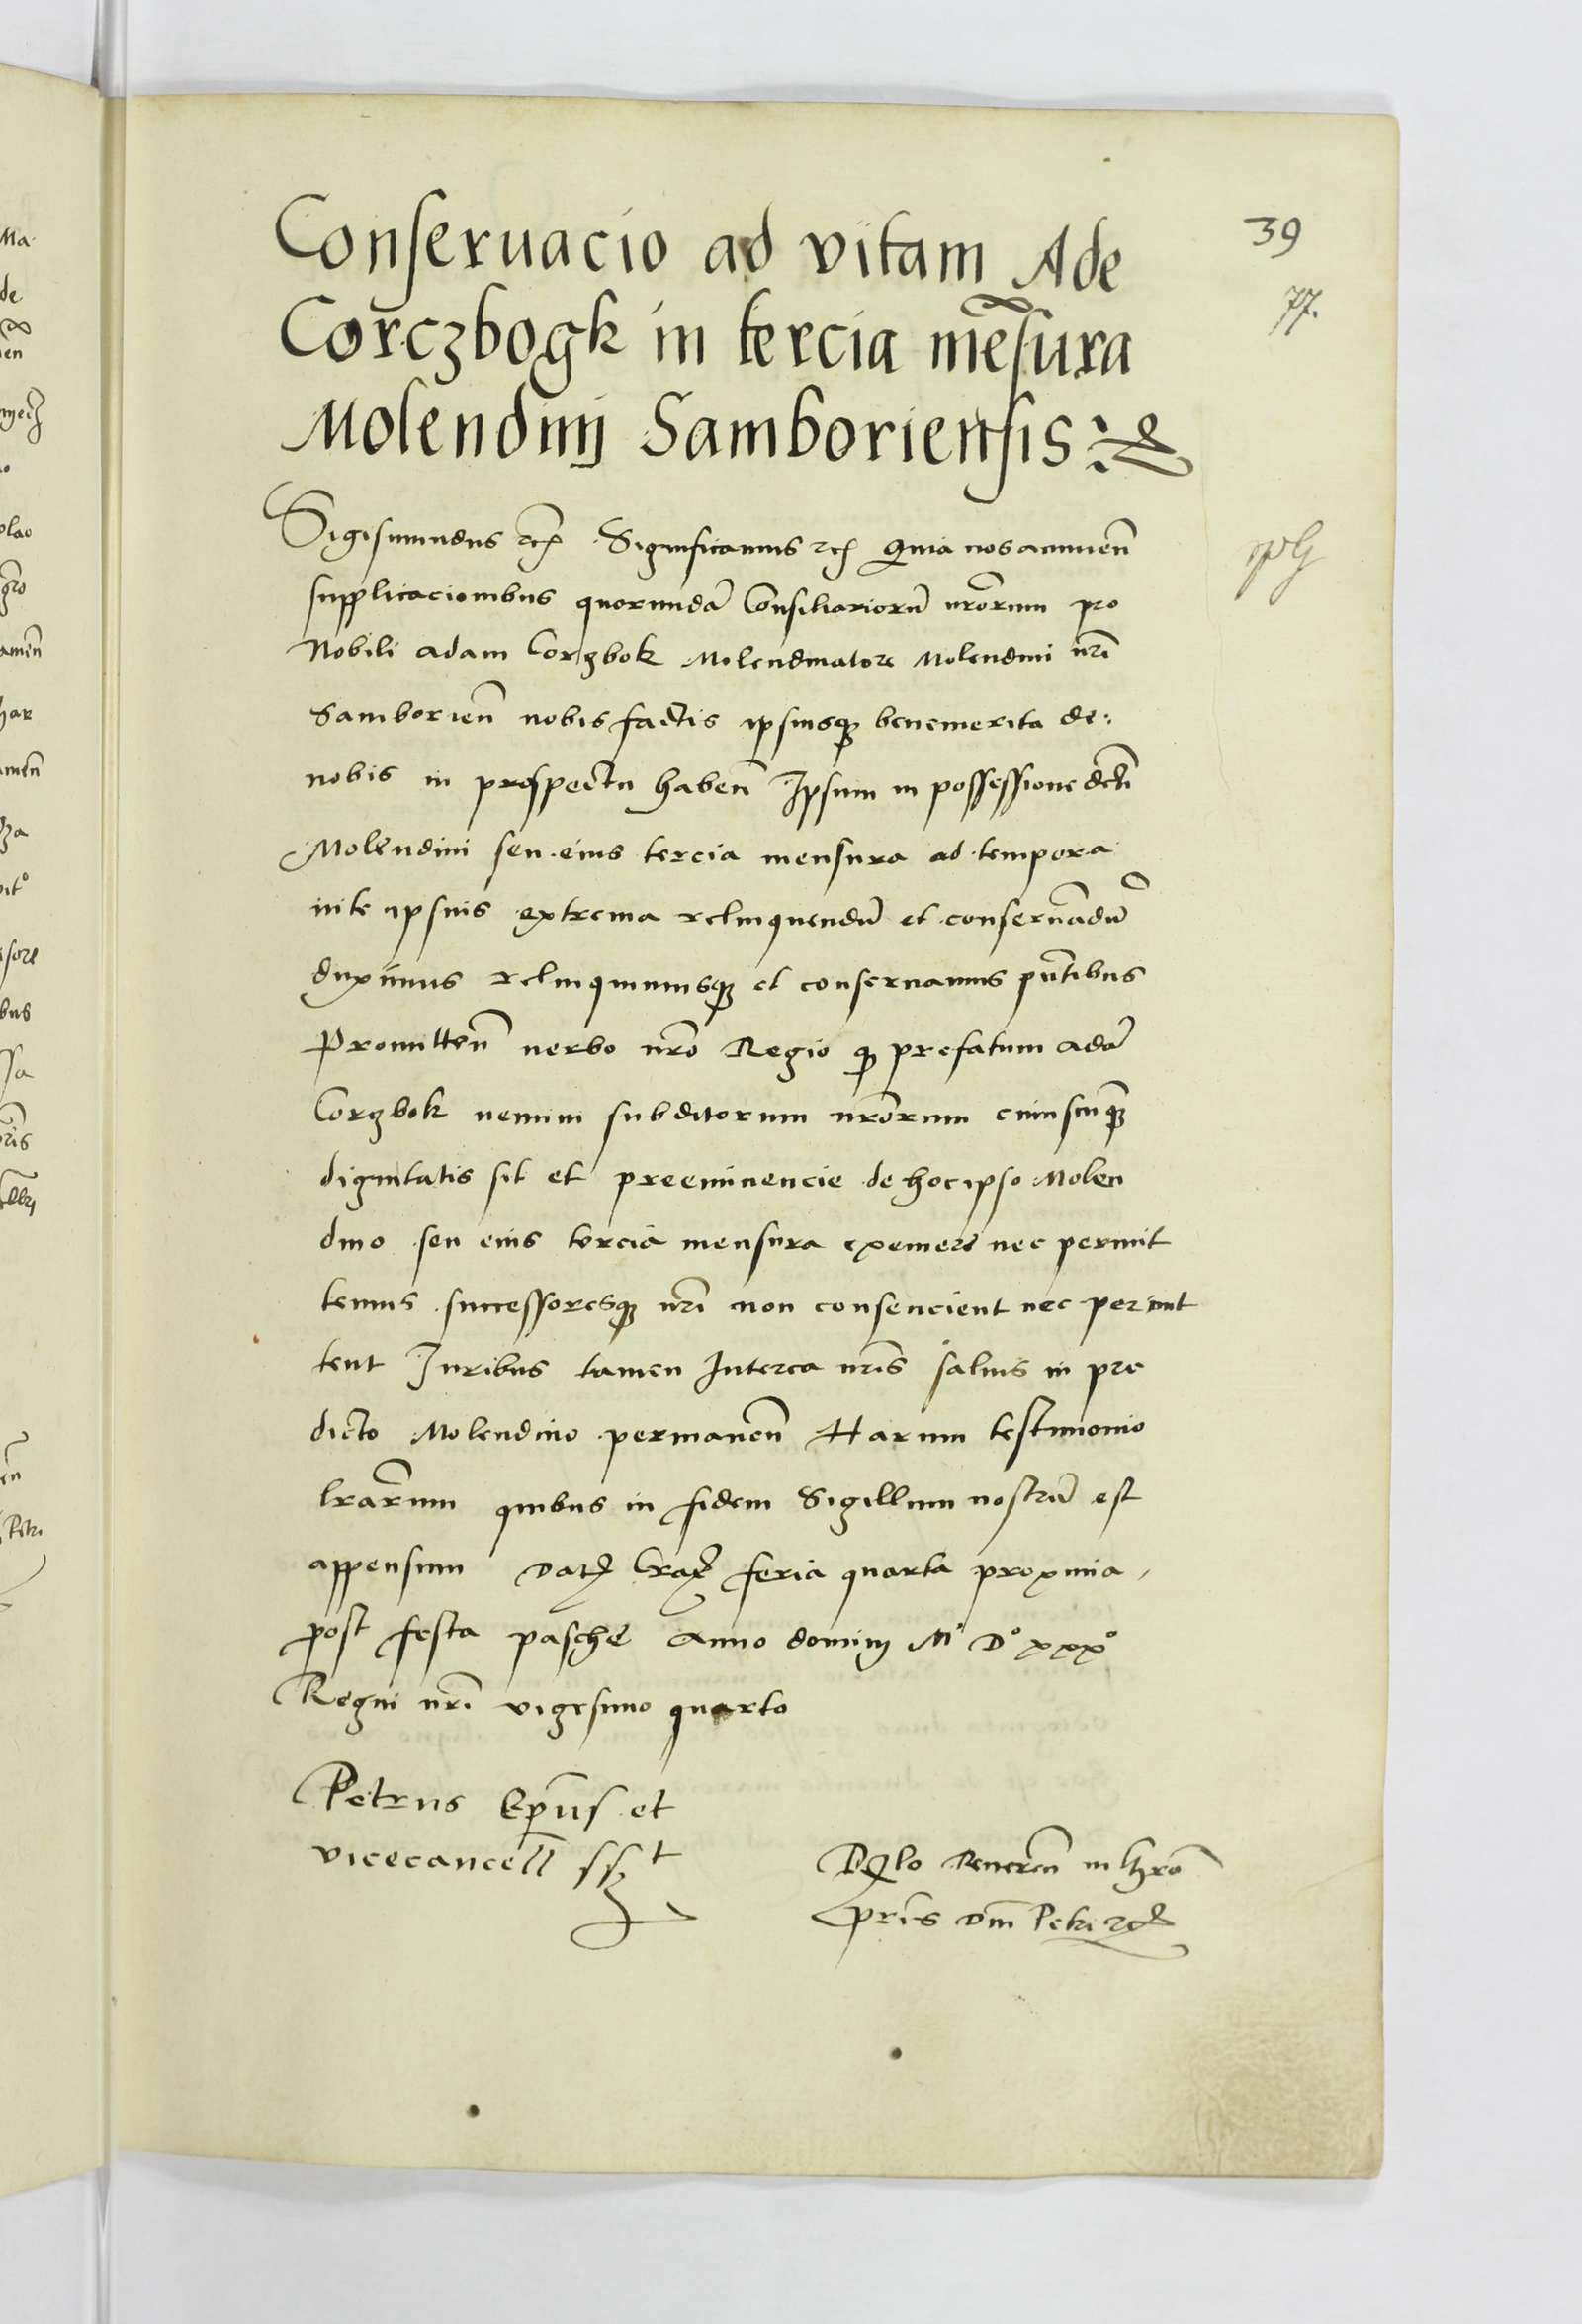 Conseruacio ad vitam Ade
Corczbogk in tercia mēsura
Molendinij Samboriensis
39
77.
Sigismundus etc Significamus etc Quia nos annuen̄
supplicacionibus quorundā Consiliariorū nr̄orum pro
Nobili adam Corzbok Molendinatore Molendini nr̄i
Samborien̄ nobis factis ipsiusqꝫ benemerita de
nobis in prospectu haben̄ Ipsum in possessione dcti
Molendini seu eius tercia mensura ad tempora
vite ipsius extrema relinquendū et conseruādū
duximus relinquimusqꝫ et conseruamus pn̄tibus
Promitten̄ verbo nr̄o Regio qꝫ prefatum adā
Corzbok nemini subditorum nr̄orum cuiuscūqꝫ
dignitatis sit et preeminencie de hoc ipso Molen
dino seu eius tercia mensura eximere nec permit
temus successoresqꝫ nr̄i non consencient nec permit
tent Juribus tamen Interea nr̄is saluis in pre
dicto Molendino permanen̄ Harum testimonio
lr̄arum quibus in fidem Sigillum nostrū est
appensum Datꝫ Craꝫ feria quarta proxima
post festa pasche anno dominj Mº Dº xxxº
Regni nr̄i vigesimo quarto
Petrus Ep̄us et
vicecancell̄ sst
Rĺo Reueren̄ in χρ̄o
pr̄is Dn̄i Petri etc